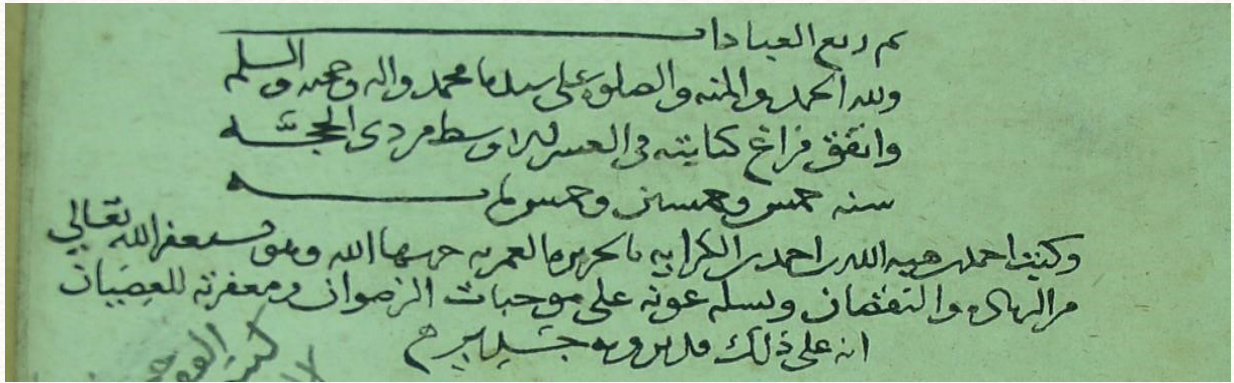 تم ربع العبادات
ولله الحمد والمنة والصلوة على سيدنا محمد واله وصحبه والسلم
واتفق فراغ كتابته في العشر الاوسط من ذي الحجة
سنة خمس وخمسين وخمس مائه
وكتب احمد بن هبة الله بن احمد بن بالجزيرة العمرية حرسها الله وهو يستغفر الله تعالى
من الزيادة والنقصان ويسله عونه على موجبات الرضوان ومغفرته للعصيان
انه على ذلك قدير وبه جدير